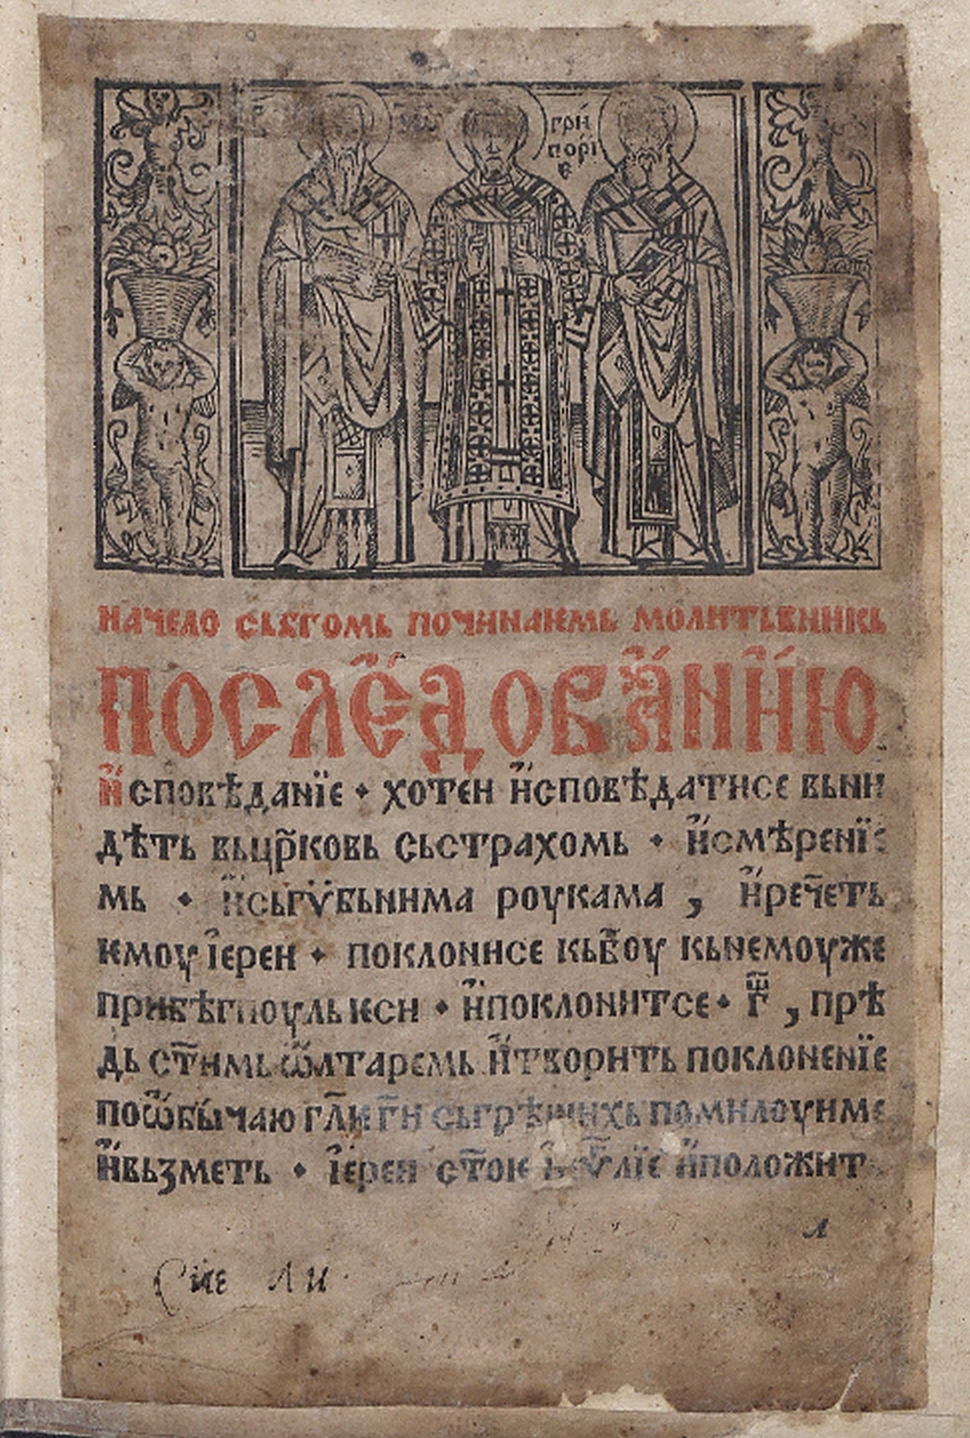 грѝ
горі
е
начело сьбгомь починаѥмь молитьвникь
послѣдованїю
исповѣданїе · хотеи исповѣдатисе вьни
дѣть вьцр҃ковь сьстрахомь · исмѣренїе
мь · исьгѵбьнима роукама , иреч҃еть
ѥмоу їереи · поклонисе кьб҃оу кьнемоуже
прибѣгноульѥси · ипоклонитсе · г҃ , прѣ
дь ст҃имь ѡлтаремь итворить поклоненїе
поѡбычаю гл҃ѥ г҃и сьгрѣшихь помилоуиме
ивьзметь · їереи ст҃оѥ иположит
л
Сие ли